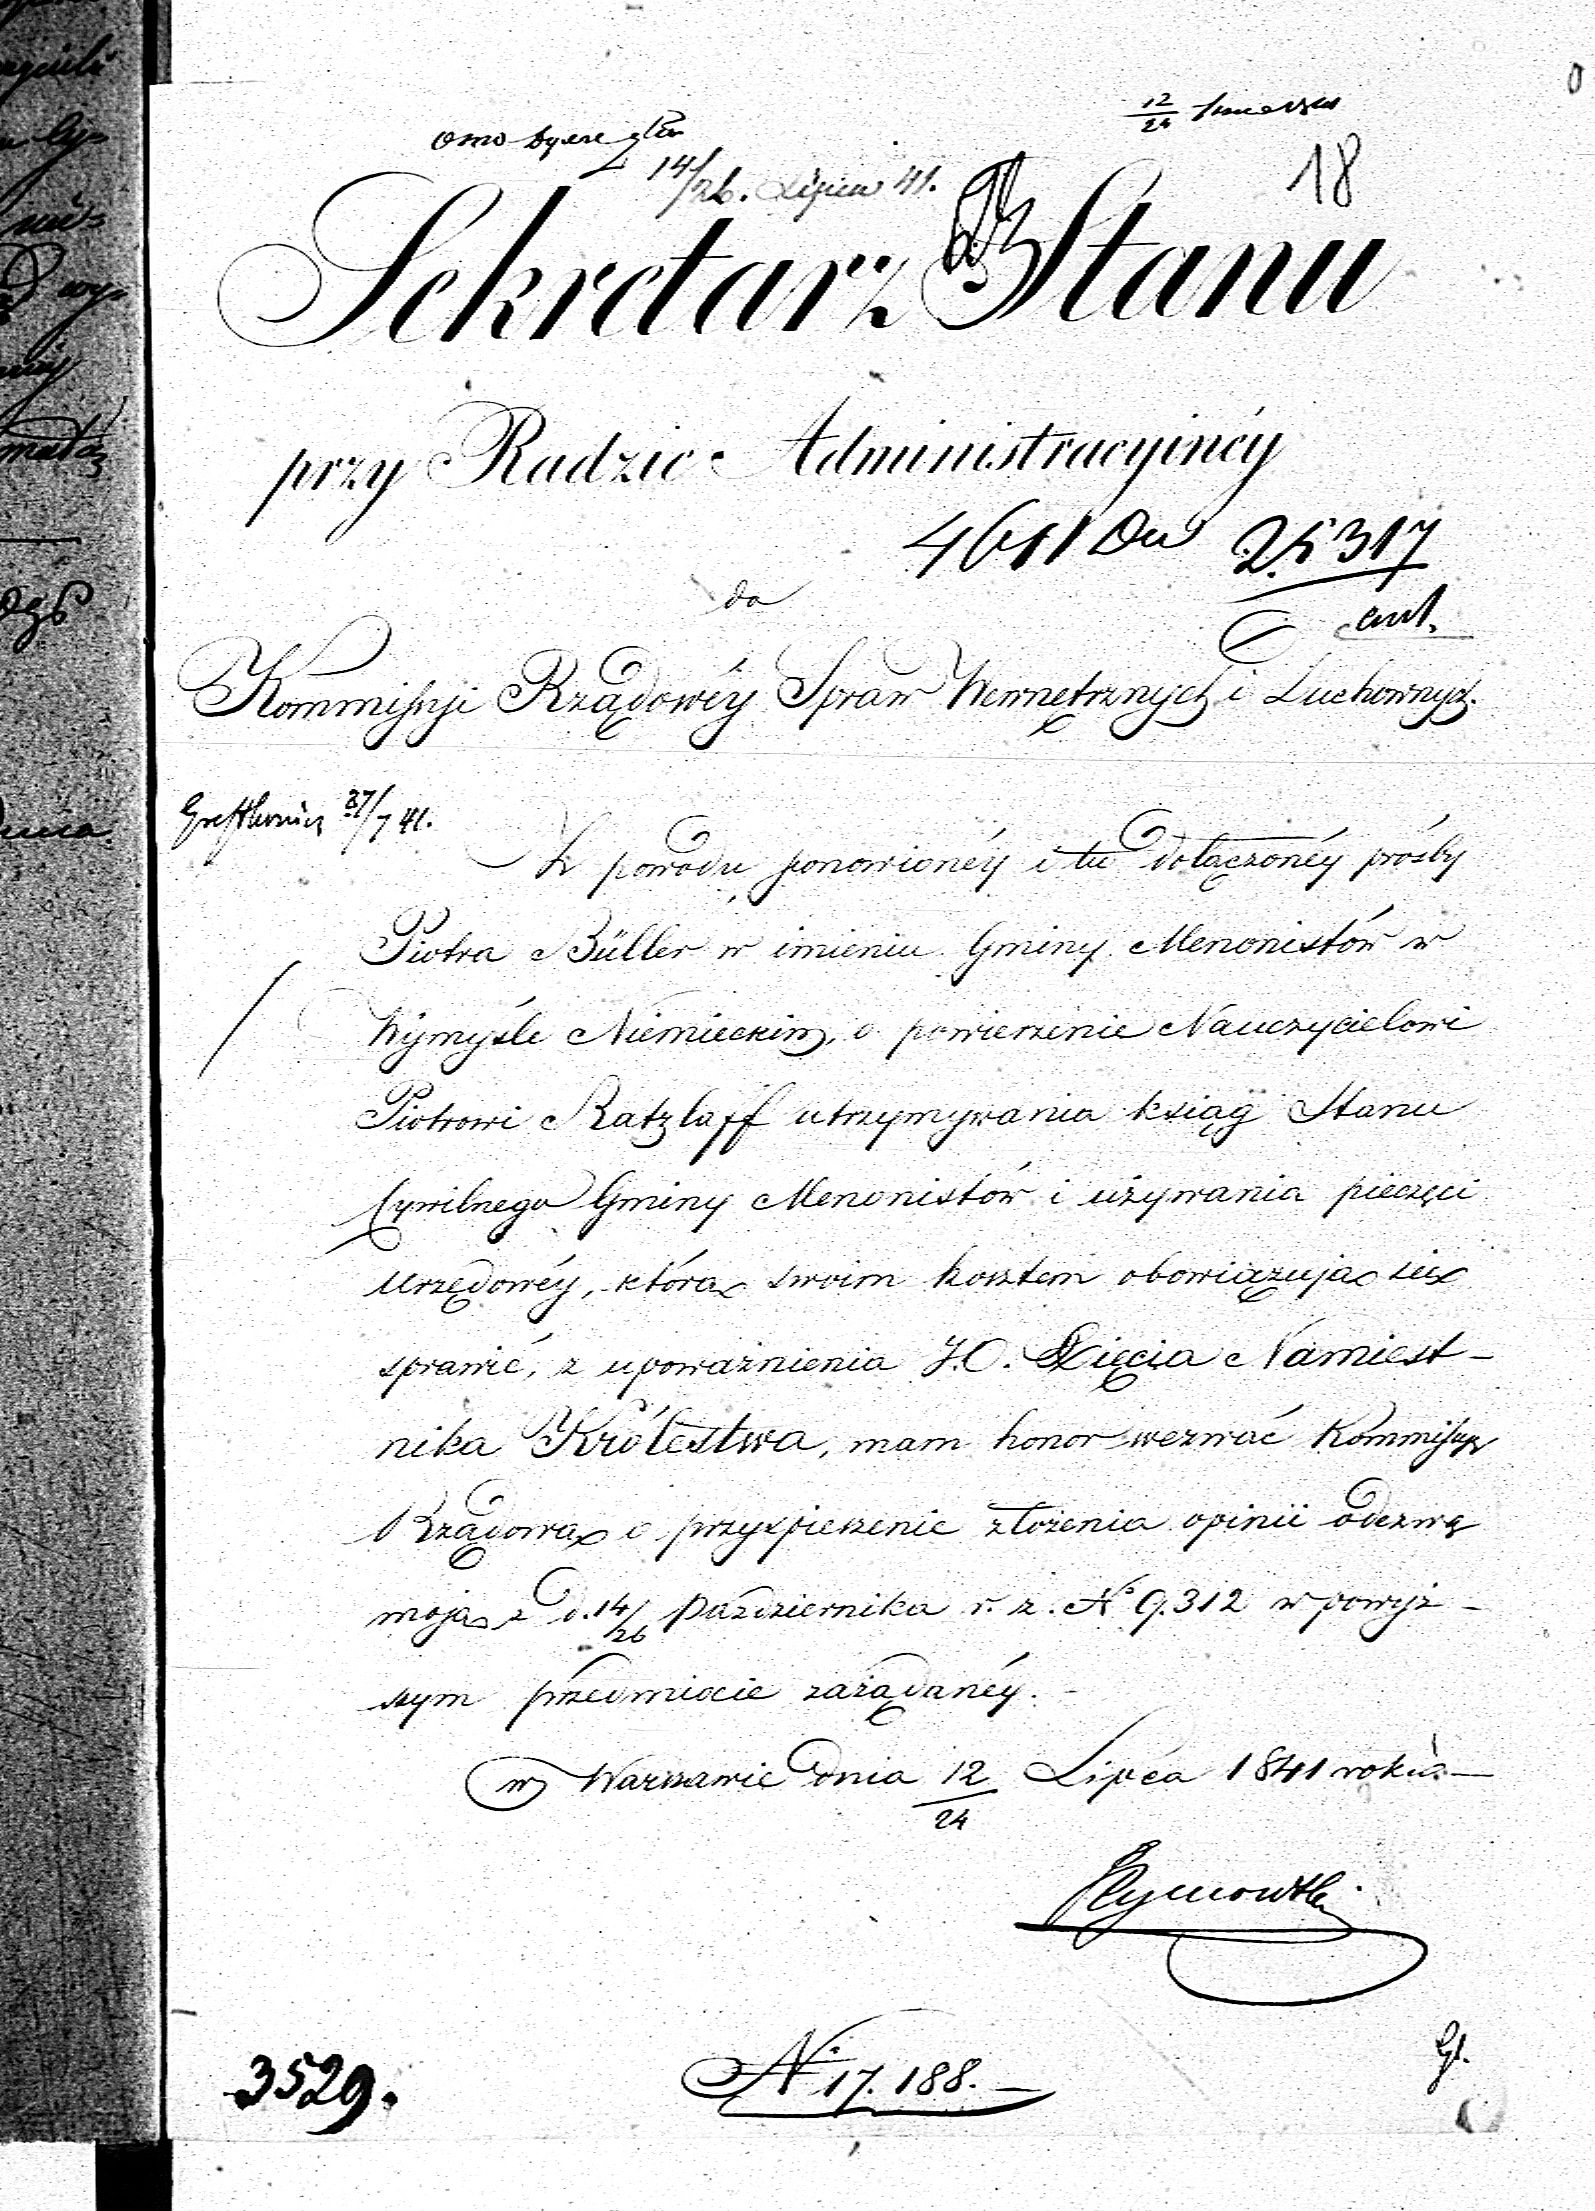 18
14/26. Lipca 41.
Sekretarz Stanu
przy Radzie Administracyinéy
4611 25317
do
Kommissyi Rządowéy Spraw Wewnętrznych i Duchownych.
27/7 41.
Z powodu ponowionéy i tu dołączonéy prośby
Piotra Büller w imieniu Gminy Menonistów w
Wymyśle Niemieckim, o powierzenie Nauczycielowi
Piotrowi Ratzlaff utrzymywania ksiąg Stanu
Cywilnego Gminy Menonistów i używania pieczęci
Urzędowéy, którą swoim kosztem obowiązują się
sprawić, z upoważnienia J.O. Xięcia Namiest-
nika Królestwa, mam honor wezwać Kommissyę
Rządową o przyspieszenie złożenia opinii odezwą
moją z d. 14/26 Października r. z. No 9.312 w powyż-
szym przedmiocie zażądanéy.-
w Warszawie dnia 12/24 Lipca 1841 roku.-
3529.
N 17.188.-